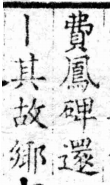 費鳳碑還
丨其故鄉